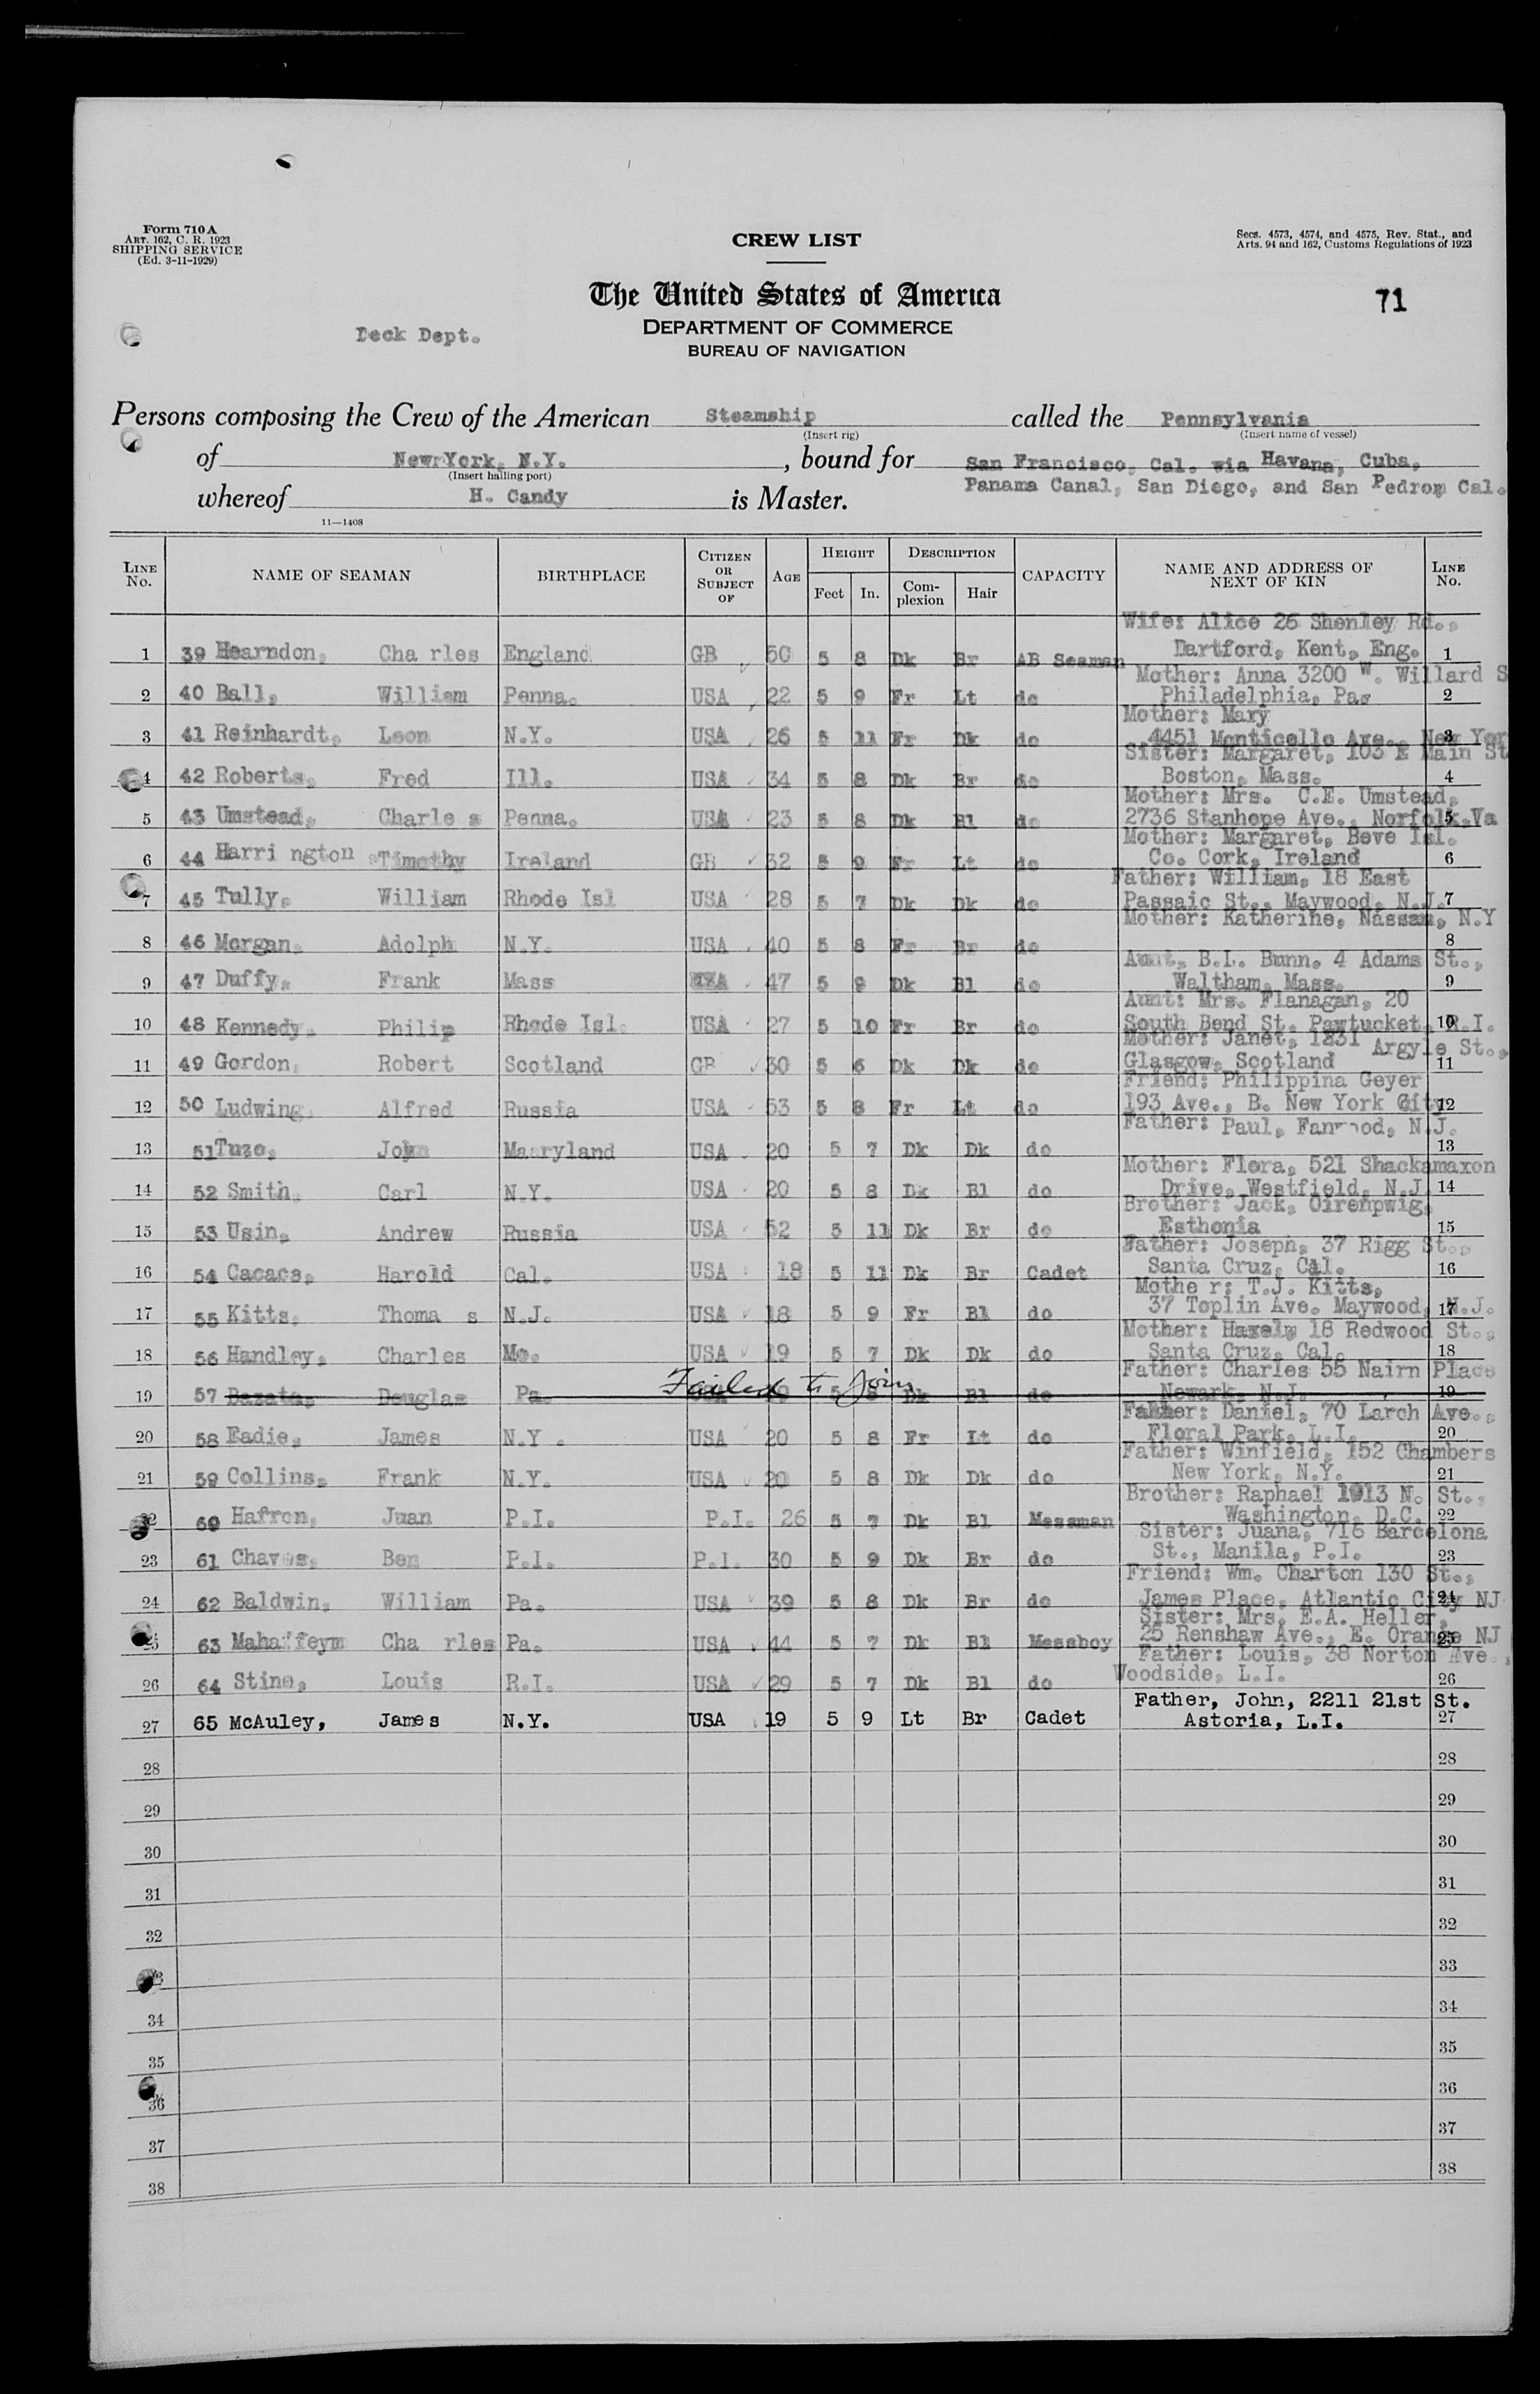 Form 710 A
ART. 162, C. R. 1923
SHIPPING SERVICE
(Ed. 3-11-1929)
CREW LIST
Secs. 4573, 4574, and 4575, Rev. Stat., and
Arts. 94 and 162, Customs Regulations of 1923
The United States of America
71
Deck Dept.
DEPARTMENT OF COMMERCE
BUREAU OF NAVIGATION
Persons composing the Crew of the American Steamship called the Pennsylvania
(Insert rig) (Insert name of vessel)
of New York, N.Y. , bound for San Francisco, Cal. via Havana, Cuba,
(Insert hailing port)
Panama Canal, San Diego, and San Pedro, Cal.
whereof H. Candy is Master.
11—1408
LINE No. NAME OF SEAMAN BIRTHPLACE CITIZEN OR SUBJECT OF AGE HEIGHT Feet In. DESCRIPTION Complexion Hair CAPACITY NAME AND ADDRESS OF NEXT OF KIN LINE No.
Wife: Alice 26 Shenley Rd.,
1 39 Hearndon, Cha rles England GB 50 5 8 Dk Br AB Seaman Dartford, Kent, Eng. 1
Mother: Anna 3200 W. Willard S
2 40 Ball, William Penna. USA 22 5 9 Fr Lt do Philadelphia, Pa. 2
Mother: Mary
3 41 Reinhardt, Leon N.Y. USA 26 5 11 Fr Dk do 4451 Monticello Ave., New Yor 3
Sister: Margaret, 103 E Main St
4 42 Roberts, Fred Ill. USA 34 5 8 Dk Br do Boston, Mass. 4
Mother: Mrs. C.E. Umstead,
5 43 Umstead, Charle s Penna. USA 23 5 8 Dk Bl do 2736 Stanhope Ave., Norfolk.Va 5
Mother: Margaret, Beve Isl.
6 44 Harri ngton Timothy Ireland GB 32 5 9 Fr Lt do Co. Cork, Ireland 6
Father: William, 18 East
7 45 Tully, William Rhode Isl USA 28 5 7 Dk Dk do Passaic St., Maywood, N.J. 7
Mother: Katherine, Nassau, N.Y
8 46 Morgan, Adolph N.Y. USA 40 5 8 Fr Br do 8
Aunt, B.L. Bunn, 4 Adams St.,
9 47 Duffy, Frank Mass USA 47 5 9 Dk Bl do Waltham, Mass. 9
Aunt: Mrs. Flanagan, 20
10 48 Kennedy, Philip Rhode Isl. USA 27 5 10 Fr Br do South Bend St. Pawtucket, R.I. 10
Mother: Janet, 1831 Argyle St.,
11 49 Gordon, Robert Scotland GB 30 5 6 Dk Dk do Glasgow, Scotland 11
Friend: Philippina Geyer
12 50 Ludwing, Alfred Russia USA 53 5 8 Fr Lt do 193 Ave., B. New York City 12
Father: Paul, Fanwood, N.J.
13 51 Tuzo, John Maaryland USA 20 5 7 Dk Dk do 13
Mother: Flora, 521 Shackamaxon
14 52 Smith, Carl N.Y. USA 20 5 8 Dk Bl do Drive, Westfield, N.J. 14
Brother: Jack, Oirenpwig,
15 53 Usin, Andrew Russia USA 52 5 11 Dk Br do Esthonia 15
Father: Joseph, 37 Rigg St.,
16 54 Cacace, Harold Cal. USA 18 5 11 Dk Br Cadet Santa Cruz, Cal. 16
Mothe r: T.J. Kitts,
17 55 Kitts, Thoma s N.J. USA 18 5 9 Fr Bl do 37 Toplin Ave. Maywood, N.J. 17
Mother: Hazel, 18 Redwood St.,
18 56 Handley, Charles Mo. USA 19 5 7 Dk Dk do Santa Cruz, Cal. 18
Father: Charles 55 Nairn Place
19 57 Bazata, Douglas Pa. Failed to join 5 8 Dk Bl do Newark, N.J. 19
Father: Daniel, 70 Larch Ave.,
20 58 Eadie, James N.Y . USA 20 5 8 Fr Lt do Floral Park, L.I. 20
Father: Winfield, 152 Chambers
21 59 Collins, Frank N.Y. USA 20 5 8 Dk Dk do New York, N.Y. 21
Brother: Raphael 1913 N. St.,
22 60 Hafron, Juan P.I. P.I. 26 5 7 Dk Bl Messman Washington, D.C. 22
Sister: Juana, 716 Barcelona
23 61 Chaves, Ben P.I. P.I. 30 5 9 Dk Br do St., Manila, P.I. 23
Friend: Wm. Charton 130 St.,
24 62 Baldwin, William Pa. USA 39 5 8 Dk Br do James Place, Atlantic City NJ 24
Sister: Mrs. E.A. Heller,
25 63 Mahaffeym Cha rles Pa. USA 44 5 7 Dk Bl Messboy 25 Renshaw Ave., E. Orange NJ 25
Father: Louis, 38 Norton Ave.,
26 64 Stine, Louis R.I. USA 29 5 7 Dk Bl do Woodside, L.I. 26
Father, John, 2211 21st St.
27 65 McAuley, James N.Y. USA 19 5 9 Lt Br Cadet Astoria, L.I. 27
28 28
29 29
30 30
31 31
32 32
33 33
34 34
35 35
36 36
37 37
38 38